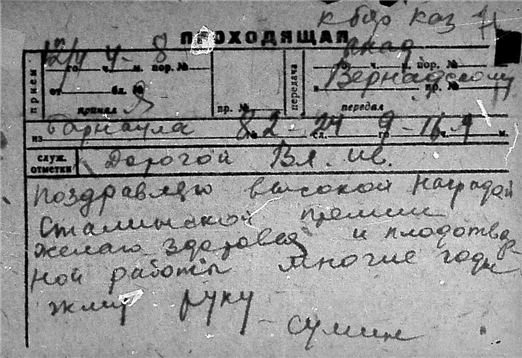 к бор каз
ПРОХОДЯЩАЯ
акад
12/4 4 - 8
го ч. м. пор. №
го ч. м. пор. №
Вернадскому
прием
от бл. №
передача
в
принял Я
пр. №
передал
из Барнаула 8 № 2 - 24 сл. 9 го - 16 ч 9 м.
служ. отметки Дорогой Вл. Ив.
Поздравляю высокой наградой
Сталинской премии
желаю здоровья и плодотвор
ной работы многие годы
жму руку
- Сумин